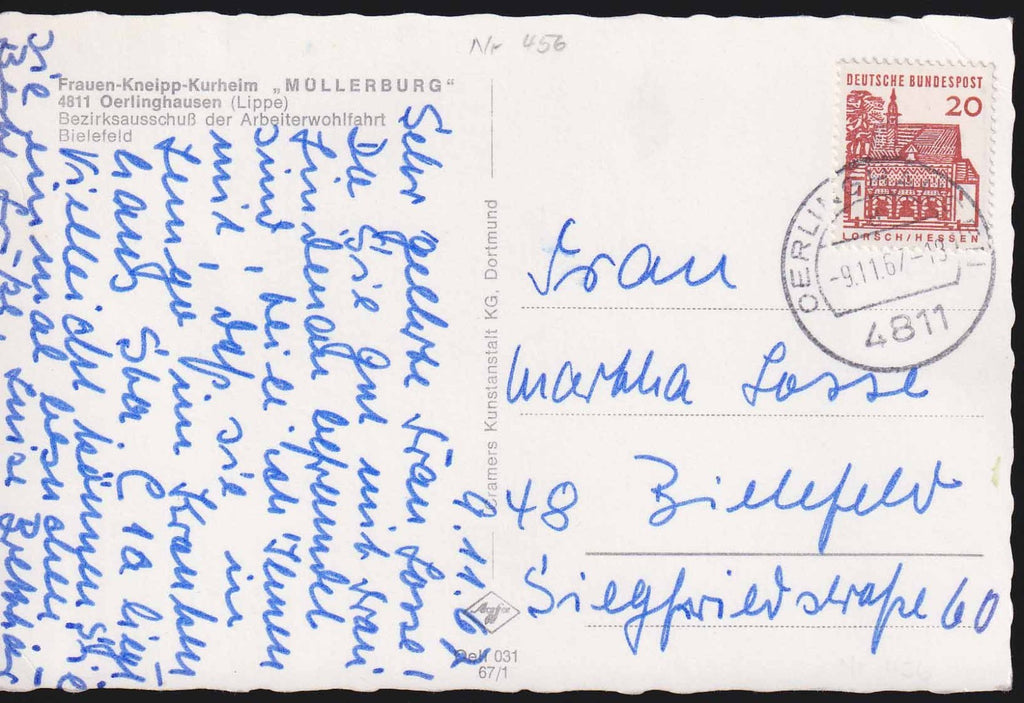 Nr 456
Frauen-Kneipp-Kurheim „MÜLLERBURG“
4811 Oerlinghausen (Lippe)
Bezirksausschuß der Arbeiterwohlfahrt
Bielefeld
9.11.67
Sehr geehrte Frau Losse!
Da Sie gut mit Frau
Lindenau befreundet
sind, teile ich Ihnen
mit, daß sie in
Lemgo im Kranken
haus Sta C 1a liegt
Vielleicht können Sie
Sie einmal besuchen
Luise
Cramers Kunstanstalt KG, Dortmund
Agfa
Oelf 031
67/1
DEUTSCHE BUNDESPOST
20
LORSCH/HESSEN
OERLING
-9.11.67-13
4811
Frau
Martha Losse
48 Bielefeld
Siegfriedstraße 60